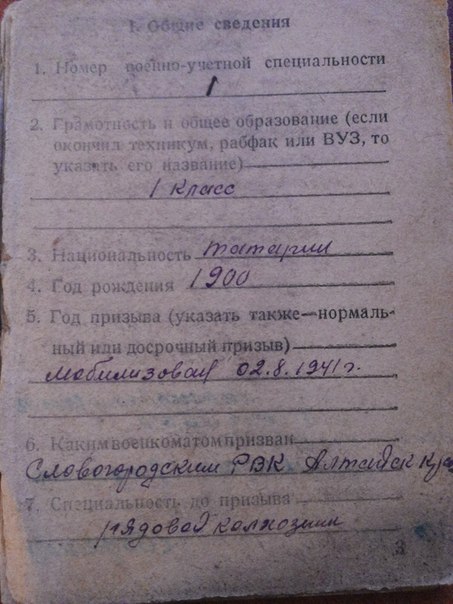 I. Общие сведения
1. Номер военно-учетной специальности
1
2. Грамотность и общее образование (если
окончил техникум, рабфак или ВУЗ, то
указать его название)
1 класс
3. Национальность татарин
4. Год рождения 1900
5. Год призыва (указать также—нормаль-
ный или досрочный призыв)
мобилизован 02.8.1941 г.
6. Каким военкоматом призван
Словогородским РВК Алтайск кр
7. Специальность до призыва
рядовой колхозник
3